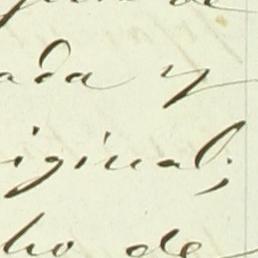 de
ada y
iginal;
ho de